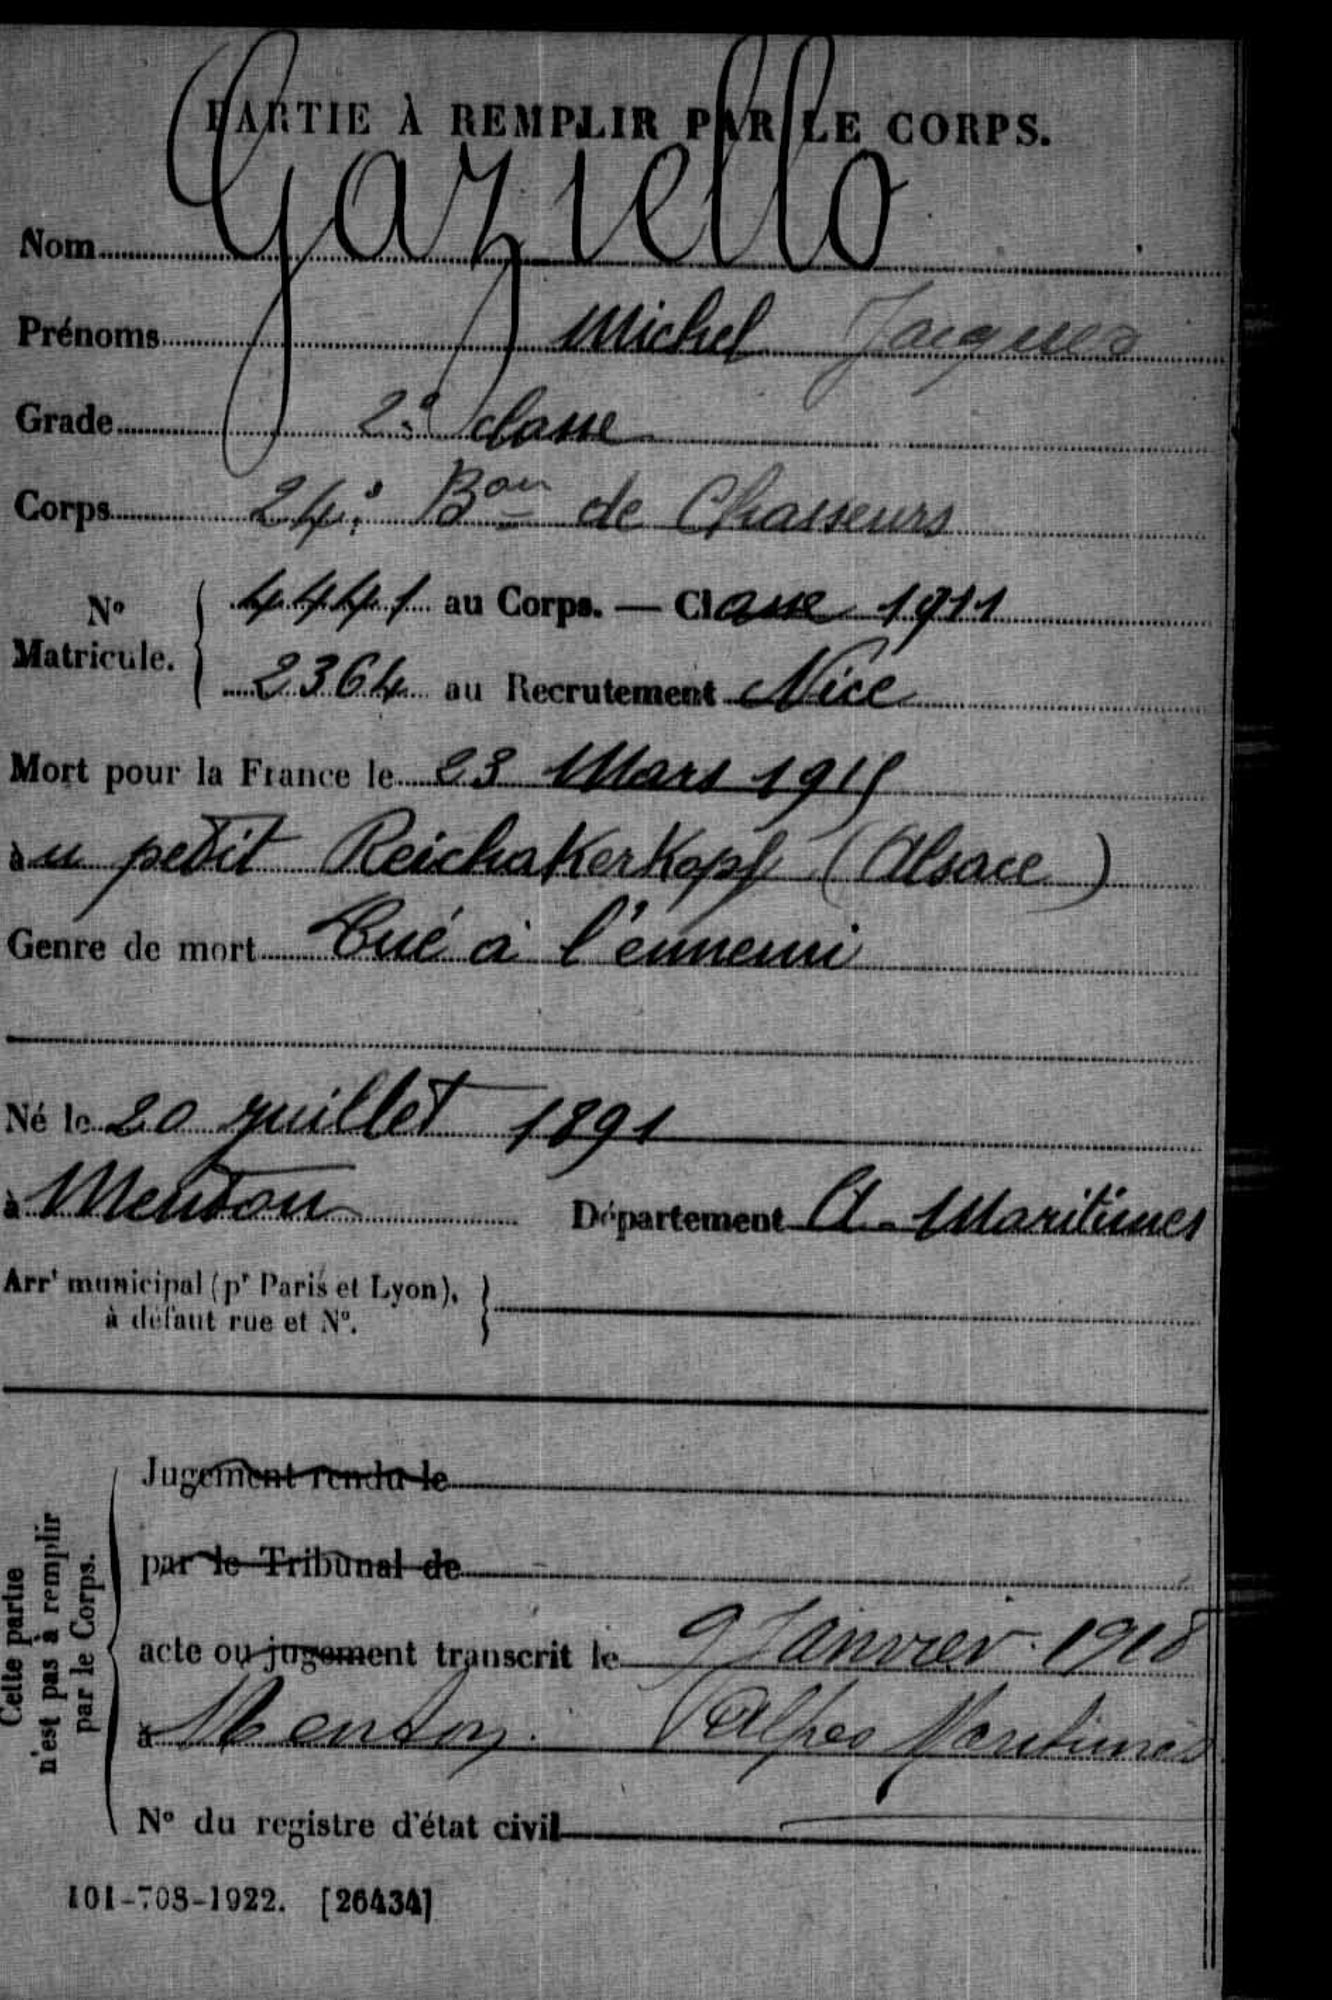 PARTIE À REMPLIR PAR LE CORPS.
Nom Gaziello
Prénoms Michel Jacques
Grade 2e classe
Corps 24e Bon de Chasseurs
No Matricule. 4441 au Corps. — Classe 1911
2364 au Recrutement Nice
Mort pour la France le 23 Mars 1915
au petit Reichakerkopf (Alsace)
Genre de mort Tué à l'ennemi
Né le 20 juillet 1891
à Menton Département A. Maritimes
Arrt municipal (pr Paris et Lyon),
à défaut rue et No.
Cette partie
n'est pas à remplir
par le Corps.
Jugement rendu le
par le Tribunal de
acte ou jugement transcrit le 9 Janvier 1918
à Menton. (Alpes Maritimes
No du registre d'état civil
101-708-1922. [26434]